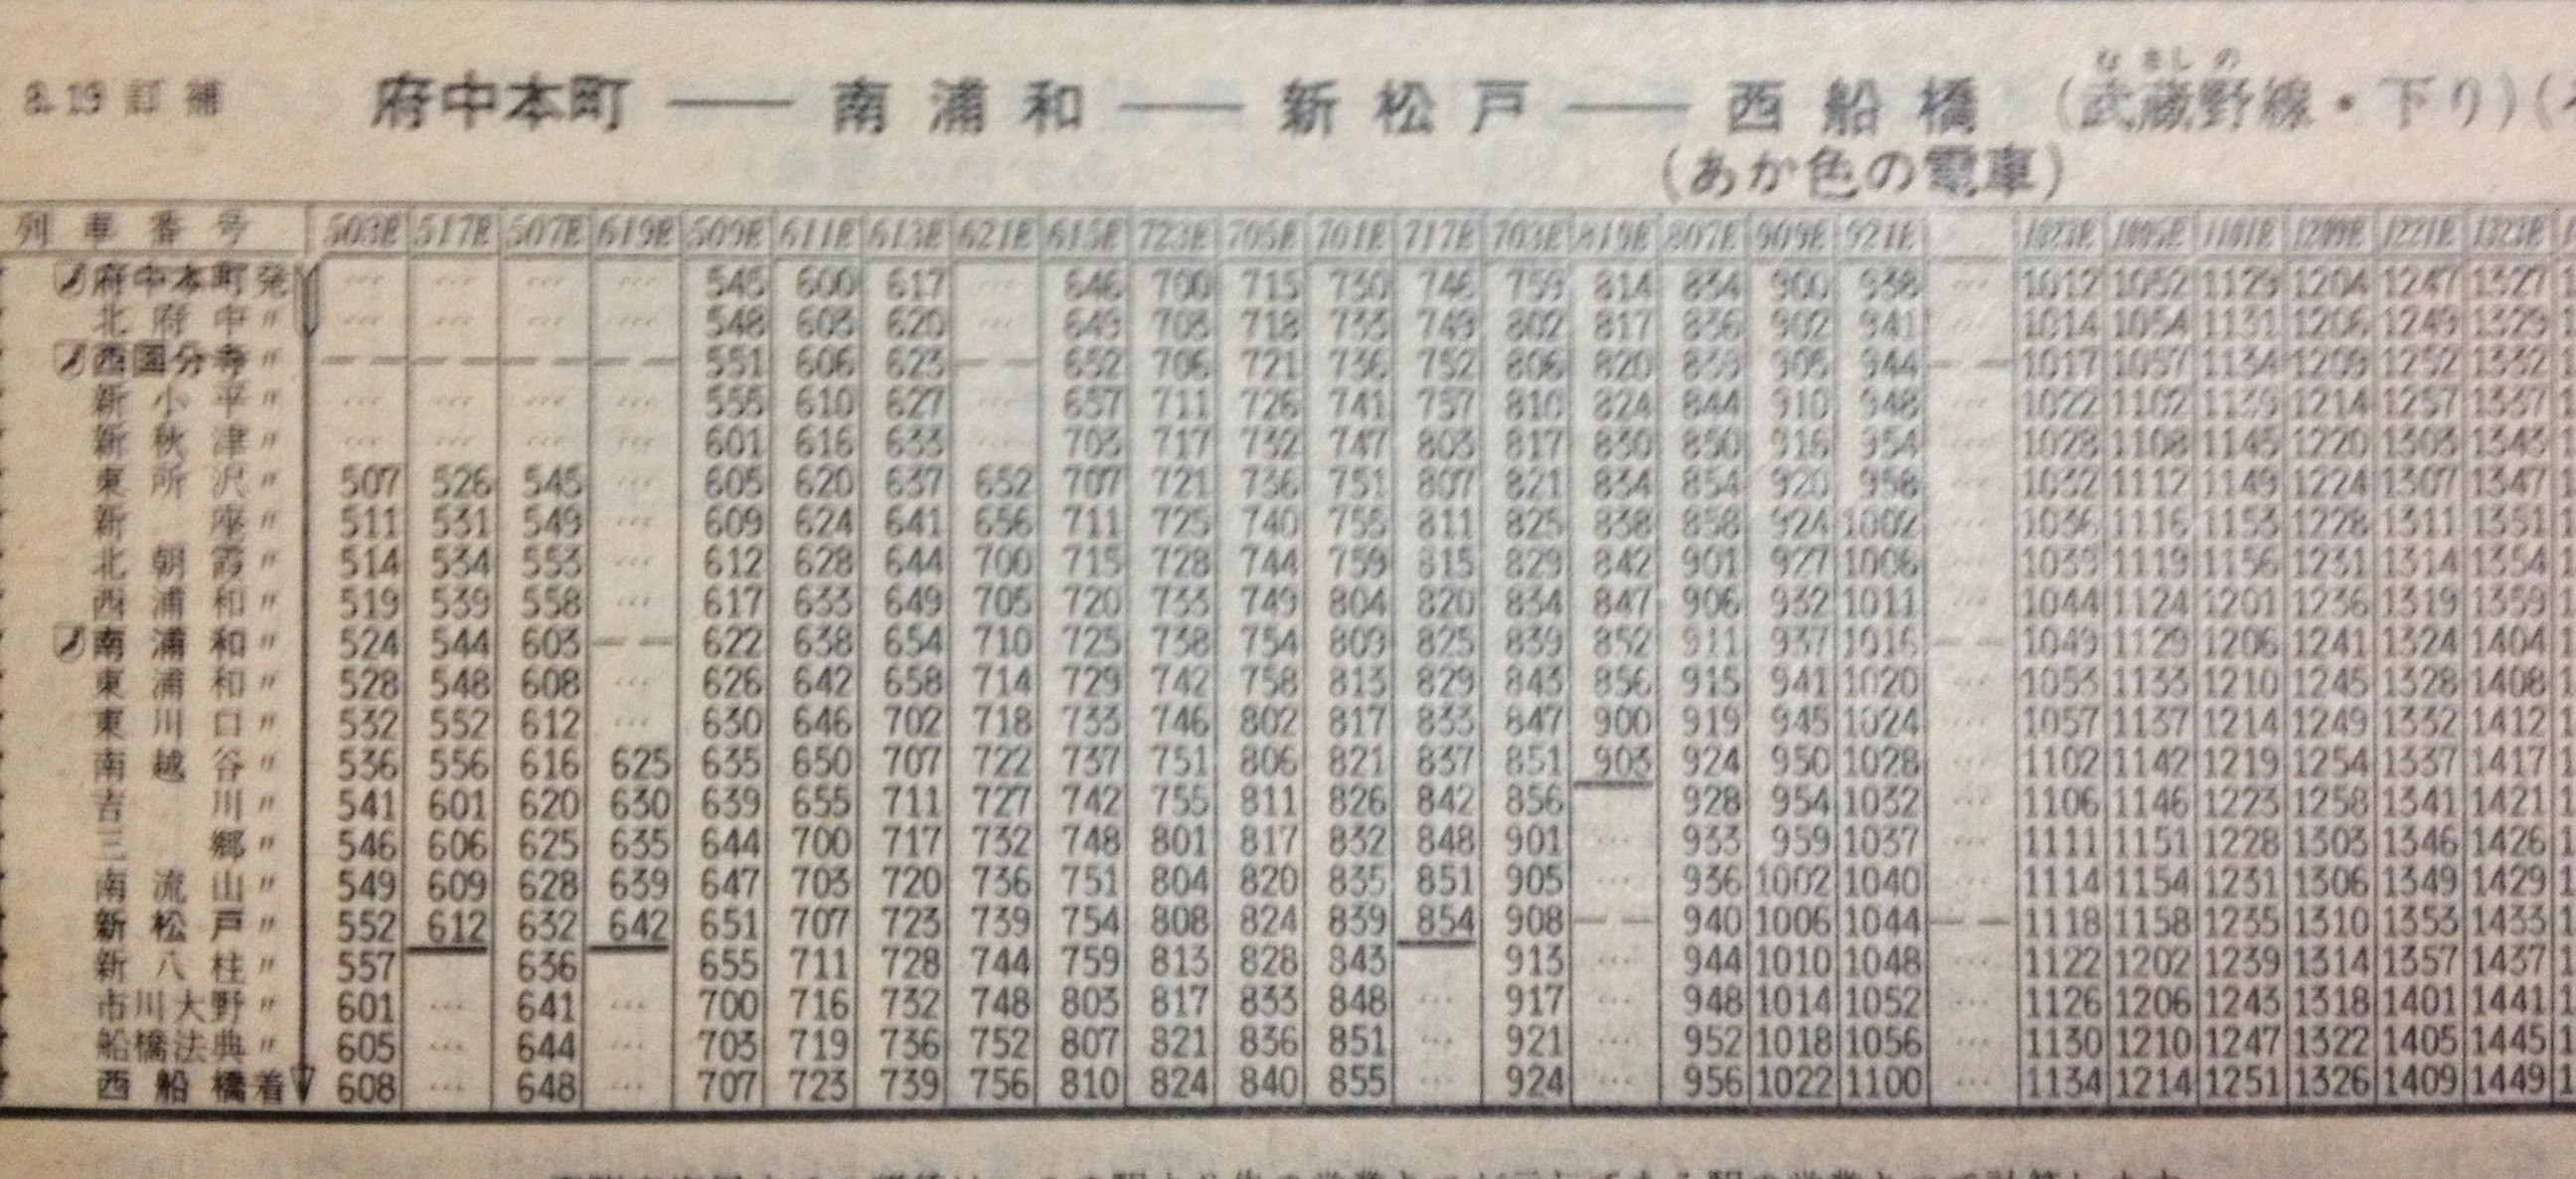 8.19 訂補
府中本町 ―― 南浦和 ―― 新松戸 ―― 西船橋 (武蔵野線・下り)(
むさしの
(あか色の電車)
列車番号 503E 517E 507E 619E 509E 611E 613E 621E 615E 723E 705E 701E 717E 703E 819E 807E 909E 921E 1023E 1005E 1101E 1209E 1221E 1323E
府中本町発 … … … … 545 600 617 … 646 700 715 730 746 759 814 834 900 938 … 1012 1052 1129 1204 1247 1327
北府中〃 … … … … 548 603 620 … 649 703 718 733 749 802 817 836 902 941 … 1014 1054 1131 1206 1249 1329
西国分寺〃 ― ― ― ― 551 606 623 ― 652 706 721 736 752 806 820 839 905 944 ― 1017 1057 1134 1209 1252 1332
新小平〃 … … … … 555 610 627 … 657 711 726 741 757 810 824 844 910 948 … 1022 1102 1139 1214 1257 1337
新秋津〃 … … … … 601 616 633 … 703 717 732 747 803 817 830 850 916 954 … 1028 1108 1145 1220 1303 1343
東所沢〃 507 526 545 … 605 620 637 652 707 721 736 751 807 821 834 854 920 958 … 1032 1112 1149 1224 1307 1347
新座〃 511 531 549 … 609 624 641 656 711 725 740 755 811 825 838 858 924 1002 … 1036 1116 1153 1228 1311 1351
北朝霞〃 514 534 553 … 612 628 644 700 715 728 744 759 815 829 842 901 927 1006 … 1039 1119 1156 1231 1314 1354
西浦和〃 519 539 558 … 617 633 649 705 720 733 749 804 820 834 847 906 932 1011 … 1044 1124 1201 1236 1319 1359
南浦和〃 524 544 603 ― 622 638 654 710 725 738 754 809 825 839 852 911 937 1016 ― 1049 1129 1206 1241 1324 1404
東浦和〃 528 548 608 … 626 642 658 714 729 742 758 813 829 843 856 915 941 1020 … 1053 1133 1210 1245 1328 1408
東川口〃 532 552 612 … 630 646 702 718 733 746 802 817 833 847 900 919 945 1024 … 1057 1137 1214 1249 1332 1412
南越谷〃 536 556 616 625 635 650 707 722 737 751 806 821 837 851 903 924 950 1028 … 1102 1142 1219 1254 1337 1417
吉川〃 541 601 620 630 639 655 711 727 742 755 811 826 842 856 928 954 1032 … 1106 1146 1223 1258 1341 1421
三郷〃 546 606 625 635 644 700 717 732 748 801 817 832 848 901 … 933 959 1037 … 1111 1151 1228 1303 1346 1426
南流山〃 549 609 628 639 647 703 720 736 751 804 820 835 851 905 … 936 1002 1040 … 1114 1154 1231 1306 1349 1429
新松戸〃 552 612 632 642 651 707 723 739 754 808 824 839 854 908 ― 940 1006 1044 ― 1118 1158 1235 1310 1353 1433
新八柱〃 557 636 655 711 728 744 759 813 828 843 913 … 944 1010 1048 … 1122 1202 1239 1314 1357 1437
市川大野〃 601 … 641 … 700 716 732 748 803 817 833 848 … 917 … 948 1014 1052 … 1126 1206 1243 1318 1401 1441
船橋法典〃 605 … 644 … 703 719 736 752 807 821 836 851 … 921 … 952 1018 1056 … 1130 1210 1247 1322 1405 1445
西船橋着 608 … 648 … 707 723 739 756 810 824 840 855 … 924 … 956 1022 1100 … 1134 1214 1251 1326 1409 1449